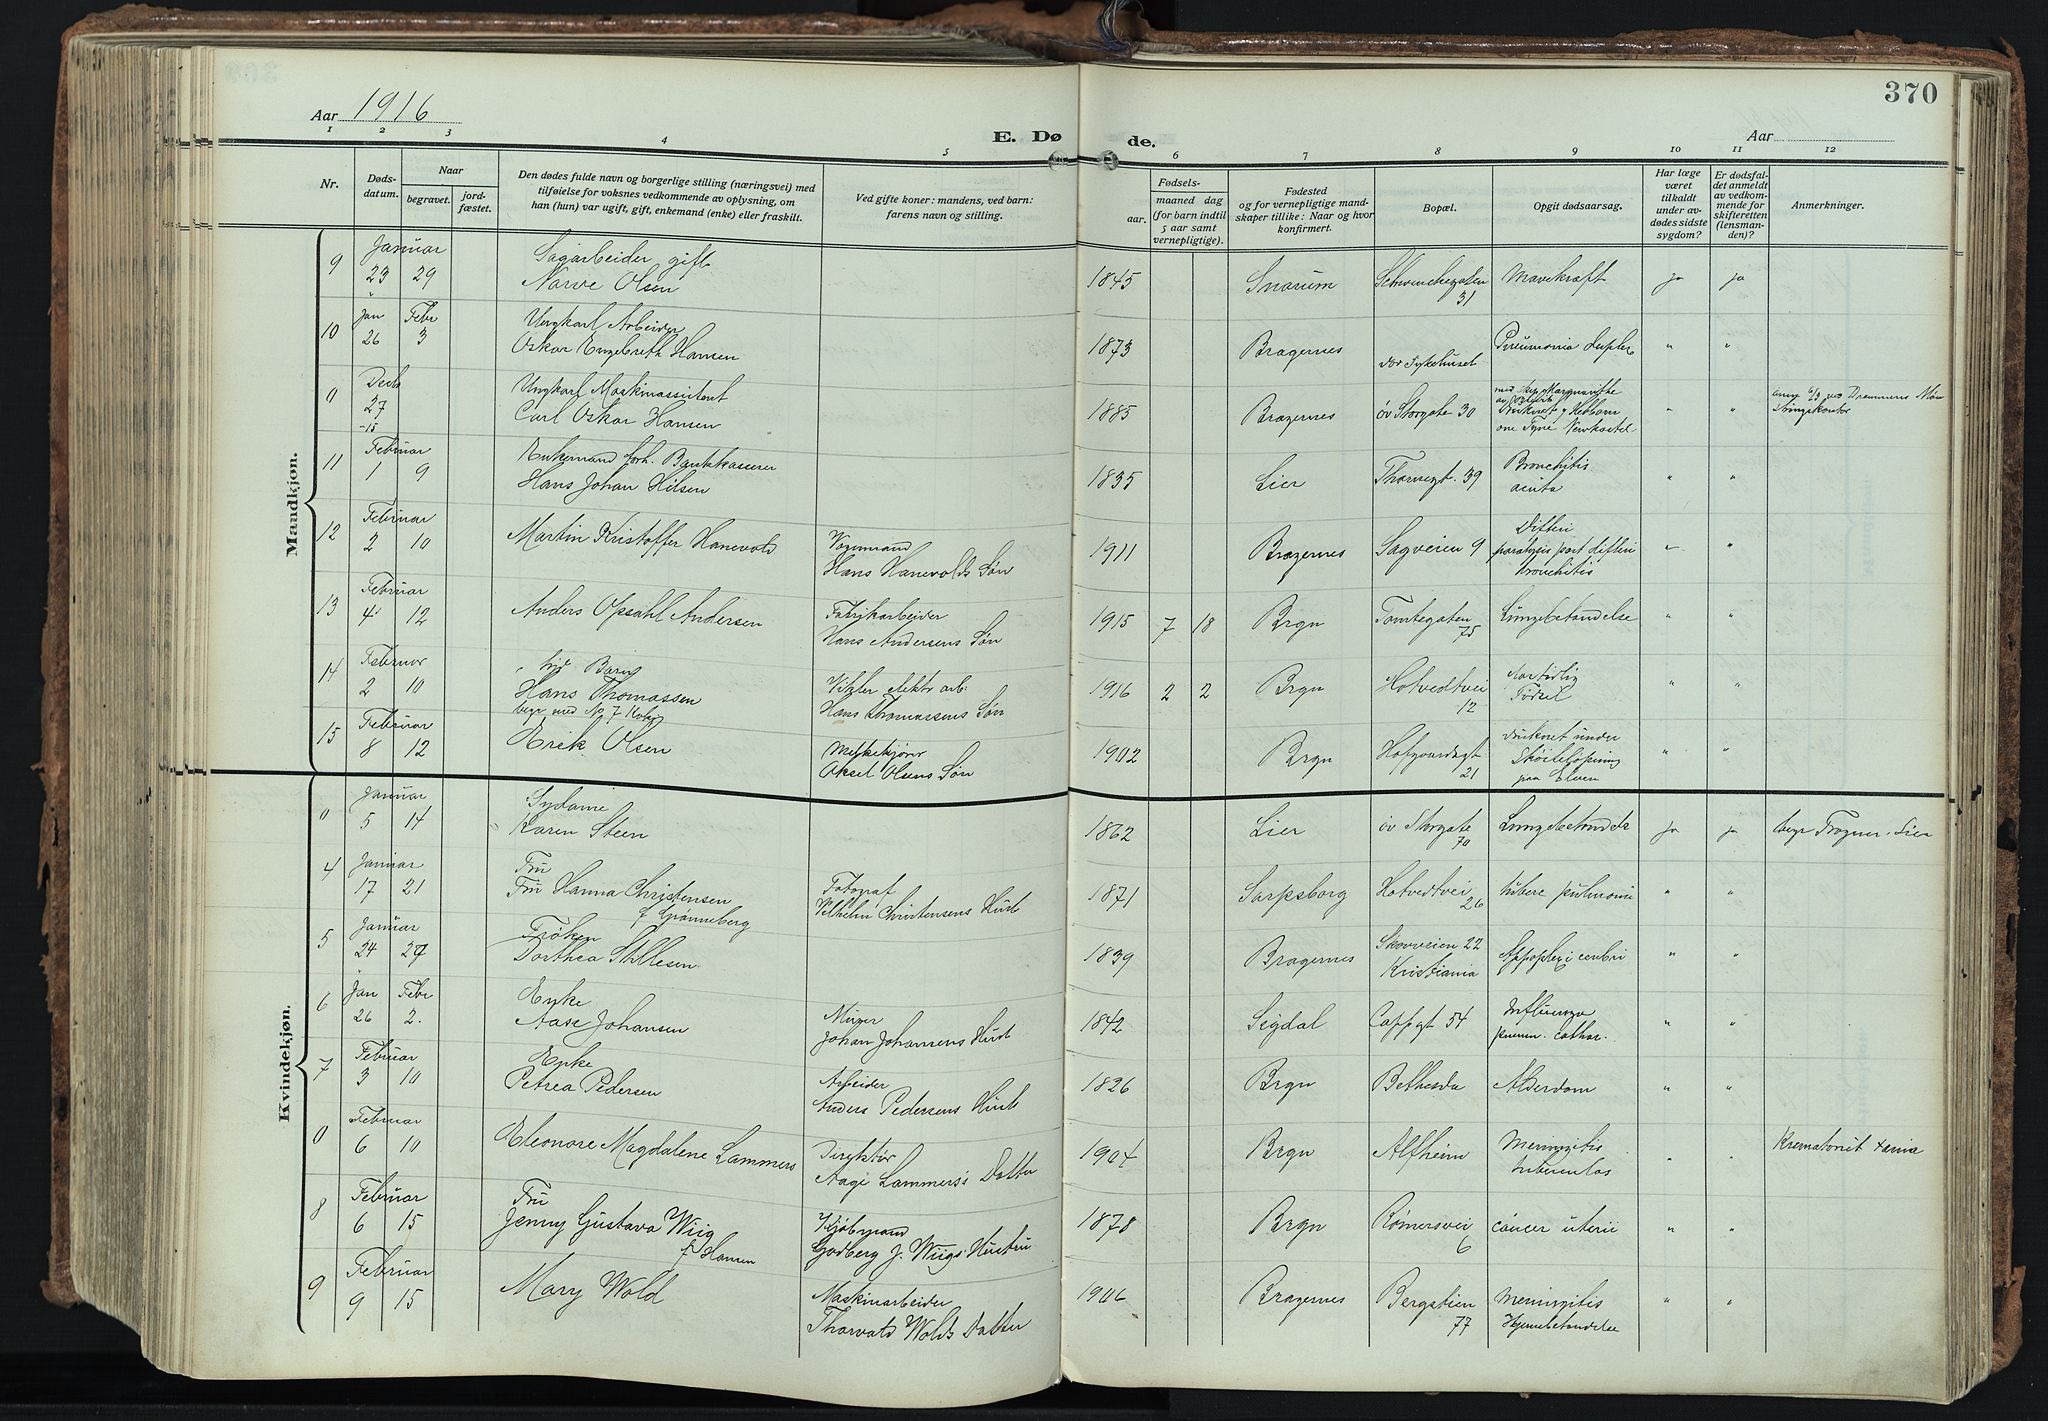 370
Aar 1916
E. Dø de.
Aar
1 2 3 4 5 6 7 8 9 10 11 12
Nr.
Døds-
datum.
Naar
begravet.
jord-
fæstet.
Den dødes fulde navn og borgerlige stilling (næringsvei) med
tilføielse for voksnes vedkommende av oplysning, om
han (hun) var ugift, gift, enkemand (enke) eller fraskilt.
Ved gifte koner: mandens, ved barn:
farens navn og stilling.
Fødsels-
aar.
maaned dag
(for barn indtil
5 aar samt
vernepligtige).
Fødested
og for vernepligtige mand-
skaper tillike: Naar og hvor
konfirmert.
Bopæl.
Opgit dødsaarsag.
Har læge
været
tilkaldt
under av-
dødes sidste
sygdom?
Er dødsfal-
det anmeldt
av vedkom-
mende for
skifteretten
(lensman-
den)?
Anmerkninger.
Mandkjøn.
9 Januar 23 29 Sagarbeider gift
Narve Olsen 1845 Snarum Schwenckegaten 31 Mavekræft ja ja
10 Jan 26 Febr 3 Ungkarl Arbeider
Oskar Engebreth Hansen 1873 Bragernes Dr Sykehuset Pneumonia duplex " "
0 Decbr 27 -15 Ungkarl Maskinassistent
Carl Oskar Hansen 1885 Bragernes øv Storgate 30 Druknet Hebburn
one Tyne Newkastel " " Drammens
11 Februar 1 9 Enkemand forh. Bankkasserer
Hans Johan Hilsen 1835 Lier Thornegt. 39 Bronchitis
acuta " "
12 Februar 2 10 Martin Kristoffer Hanevold Vognmand
Hans Hanevolds Søn 1911 Bragernes Sagveien 9 Difteri
paralysis post difteri
bronchitis " "
13 Februar 4 12 Anders Opsahl Andersen Fabrikarbeider
Hans Andersens Søn 1915 7 18 Brgn Tomtegaten 75 Lungebetændelse " "
14 Februar 2 10 Barn
Hans Thomassen
begr med No 7 Kvkj elektr arb.
Hans Thomassens Søn 1916 2 2 Brgn Hotvedtvei 12 Fødsel " "
15 Februar 8 12 Erik Olsen Melkekjører
Aksel Olsens Søn 1902 Brgn Hofgaardsgt 21 druknet under
Skøiteløpning
paa Elven " "
Kvindekjøn.
0 Januar 5 14 Sydame
Karen Steen 1862 Lier øv Storgate 70 Lungebetændelse ja ja begr Tragner. Lier
4 Januar 17 21 Fru
Fru Hanna Christensen
f Granneberg Fotograf
Vilhelm Christensens Hust 1871 Sarpsborg Hotvedtvei 26 tuberc pulmoni " "
5 Januar 24 29 Frøken
Dorthea Stillesen 1839 Bragernes Skovveien 22
Kristiania Appoplexi cerebri " "
6 Jan 26 Febr 2. Enke
Aase Johansen Murer
Johan Johansens Hust 1842 Sigdal Cappgt 54 Influenza
pneum. cathar. " "
7 Februar 3 10 Enke
Petrea Pedersen Arbeider
Anders Pedersens Hust 1826 Brgn Bethesda Alderdom " "
0 Februar 6 10 Eleonore Magdalene Lammers Direktør
Aage Lammers's Datter 1904 Brgn Alfheim Meningitis
tuberculos " " Krematoriet Xania
8 Februar 6 15 Fru
Jenny Gustava Wiig
f Hansen Kjøbmand
Godberg J. Wiigs Hustru 1878 Brgn Rømersvei 6 cancer uterii " "
9 Februar 9 15 Mary Wold Maskinarbeider
Thorvald Wolds Datter 1906 Bragernes Bergstien 77 Meningitis
Hjernebetændelse " "